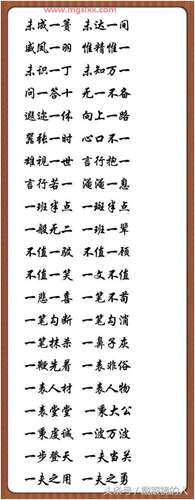 www.mgsixx.com
未成一篑 未达一间
威凤一羽 惟精惟一
未识一丁 未知万一
问一答十 无一不备
遐迩一体 向上一路
嚣张一时 心口不一
雄视一世 言行抱一
言行若一 淹淹一息
一班半点 一斑半点
一般无二 一班一辈
不值一驳 不值一顾
不值一笑 一文不值
一悲一喜 一笔不苟
一笔勾断 一笔勾消
一笔抹杀 一鼻子灰
一鞭先着 一表非俗
一表人材 一表人物
一表堂堂 一秉大公
一秉虔诚 一波万波
一步登天 一夫当关
一夫之用 一夫之勇